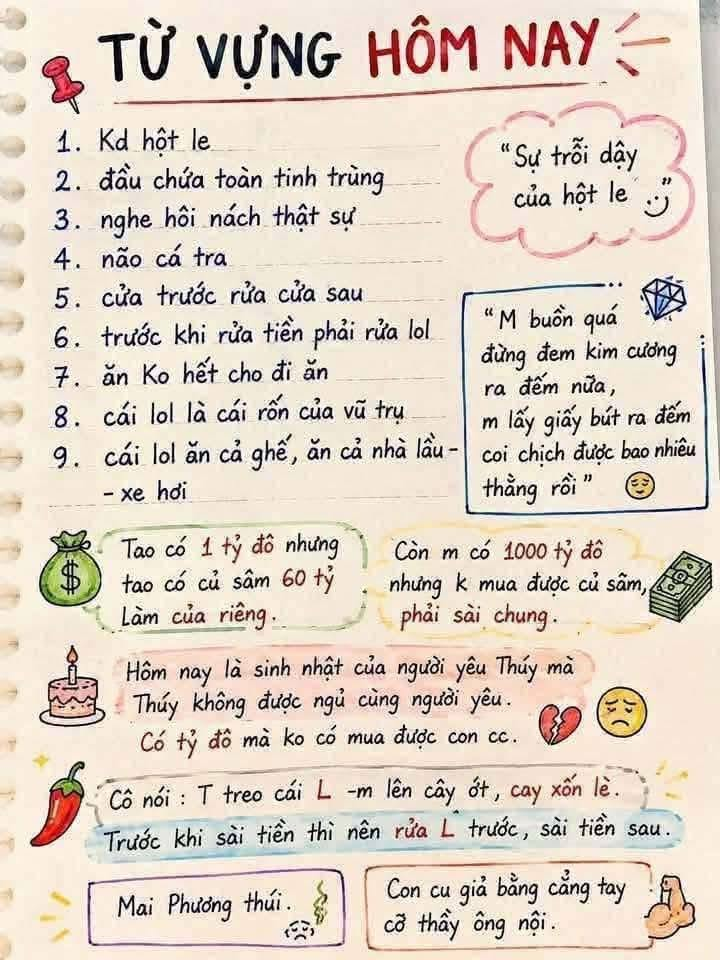 TỪ VỰNG HÔM NAY
1. Kd hột le
2. đầu chứa toàn tinh trùng
3. nghe hôi nách thật sự
4. não cá tra
5. cửa trước rửa cửa sau
6. trước khi rửa tiền phải rửa lol
7. ăn Ko hết cho đi ăn
8. cái lol là cái rốn của vũ trụ
9. cái lol ăn cả ghế, ăn cả nhà lầu -
- xe hơi
"Sự trỗi dậy
của hột le"
"M buồn quá
đừng đem kim cương
ra đếm nữa,
m lấy giấy bút ra đếm
coi chịch được bao nhiêu
thằng rồi"
Tao có 1 tỷ đô nhưng
tao có củ sâm 60 tỷ
Làm của riêng.
Còn m có 1000 tỷ đô
nhưng k mua được củ sâm,
phải sài chung.
Hôm nay là sinh nhật của người yêu Thúy mà
Thúy không được ngủ cùng người yêu.
Có tỷ đô mà ko có mua được con cc.
Cô nói : T treo cái L -m lên cây ớt, cay xốn lè.
Trước khi sài tiền thì nên rửa L trước, sài tiền sau.
Mai Phương thúi.
Con cu giả bằng cẳng tay
cỡ thầy ông nội.